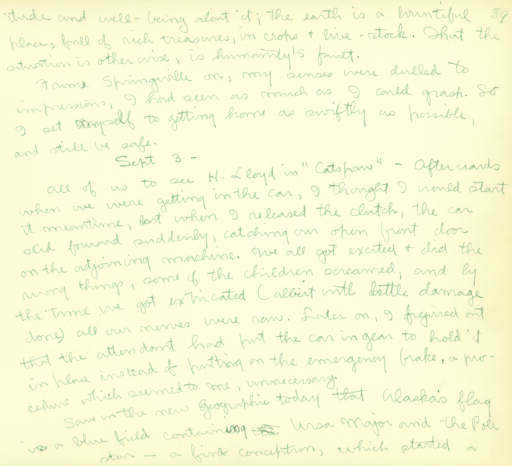 titude and well-being about it; the earth is a bountiful 89
place, full of rich treasures, in crops & live-stock. That the
situation is otherwise, is humanity's fault.
From Springville on, my senses were dulled to
impressions, I had seen as much as I could grasp. So
I set myself to getting home as swiftly as possible,
and still be safe.
Sept 3 -
All of us to see H. Lloyd in "Catspaw" - Afterwards
when we were getting in the car, I thought I would start
it meantime, but when I released the clutch, the car
slid forward suddenly, catching our open front door
on the adjoining machine. We all got excited & did the
wrong things, some of the children screamed, and by
the time we got extricated (albeit with little damage
done) all our nerves were raw. Later on, I figured out
that the attendant had put the car in gear to hold it
in place instead of putting on the emergency brake, a pro-
cedure which seemed to me, unnecessary.
Saw in the new Geographic today that Alaska's flag
is a blue field containing Ursa Major and the Pole
star - a fine conception, which started a